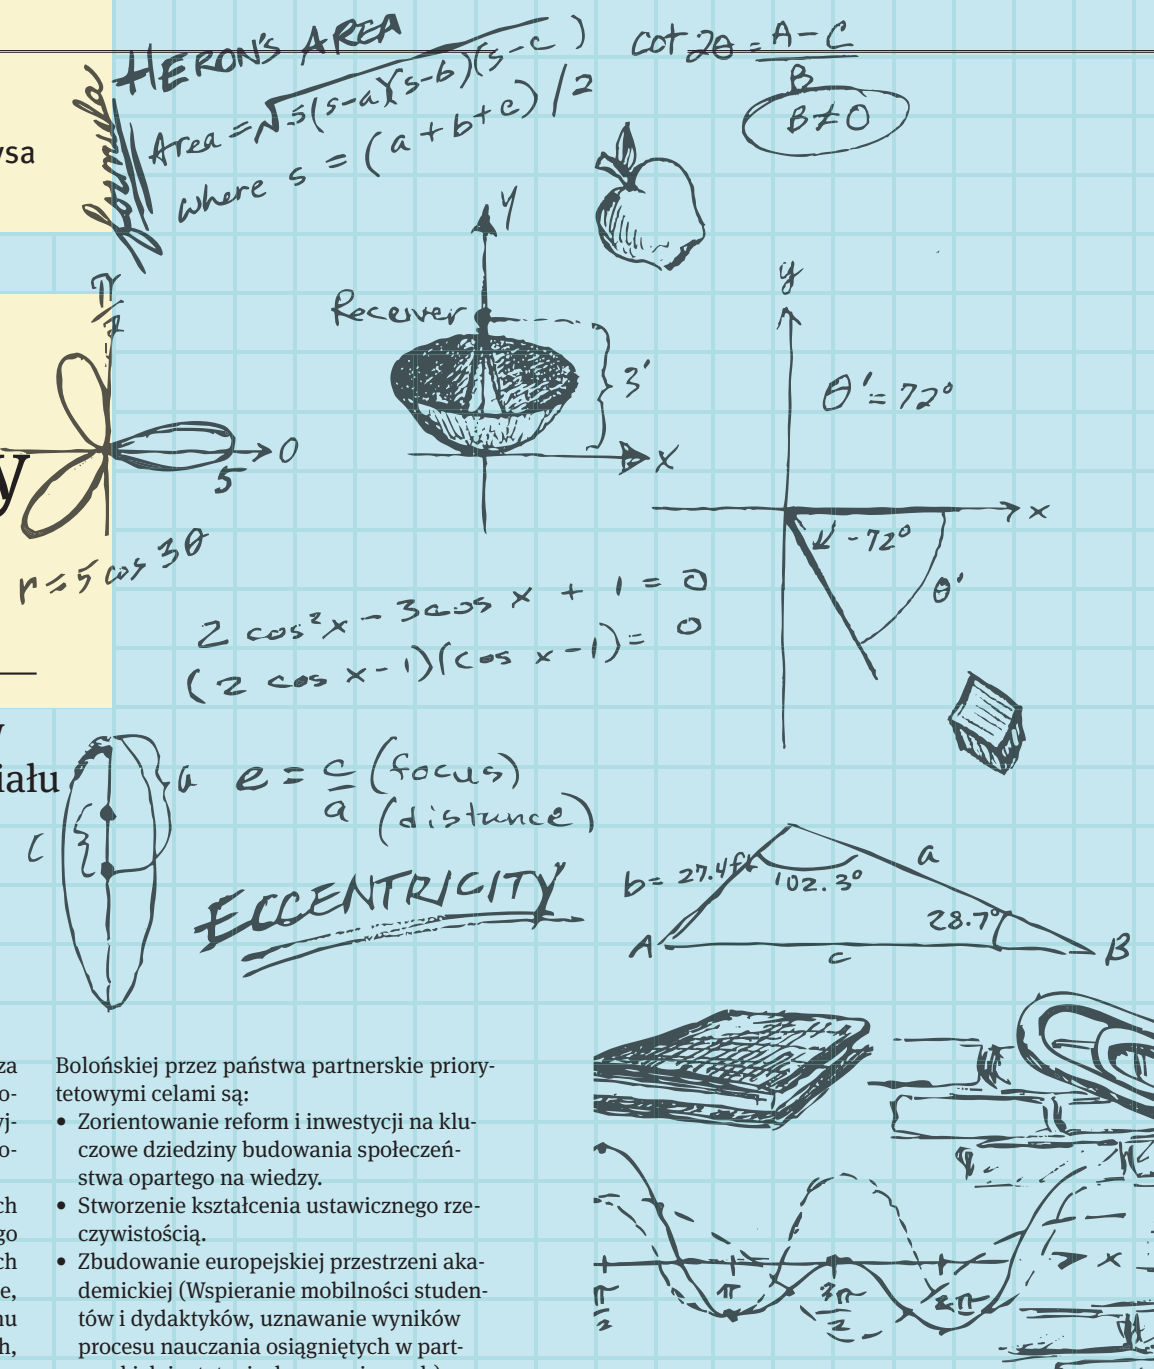 HERON'S AREA
formula
Area = √s(s-a)(s-b)(s-c)
where s = (a+b+c)/2
cot 2θ = A-C
B
B≠0
ysa
y
Receiver
3'
x
π
2
0
5
r = 5 cos 3θ
y
y
θ' = 72°
x
-72°
θ'
2 cos²x - 3cos x + 1 = 0
(2 cos x-1)(cos x-1) = 0
y
iału
a
c
e = c (focus)
a (distance)
ECCENTRICITY
b = 27.4ft
102.3°
a
28.7°
A
c
B
za
o-
yj-
o-
ch
go
ch
e,
nu
h,
Bolońskiej przez państwa partnerskie priory-
tetowymi celami są:
• Zorientowanie reform i inwestycji na klu-
czowe dziedziny budowania społeczeń-
stwa opartego na wiedzy.
• Stworzenie kształcenia ustawicznego rze-
czywistością.
• Zbudowanie europejskiej przestrzeni aka-
demickiej (Wspieranie mobilności studen-
tów i dydaktyków, uznawanie wyników
procesu nauczania osiągniętych w part-
π
2
π
3π
2
2π
x